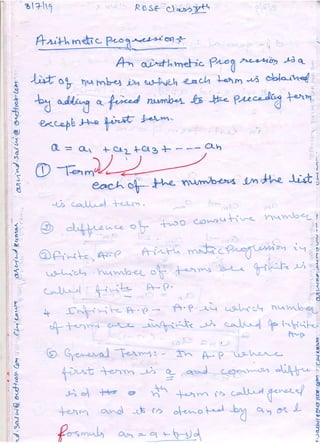 8/7/19 ROSE Class 10th
Arithmetic Progression :-
An airthmetic Progression is a
list of numbers in which each term is obtained
by adding a fixed number to the Preceding term
except the first term.
a = a1 + a2 + a3 + - - - - an
① Term
each of the numbers in the list
is called term.
② difference of two consutive number
③ Finite A.P Airth matic Progression in
which number of terms are finite is
Called finite A-P.
4 Infinite A.P - A.P in which number
of terms are infinite is called
A.P
⑤ General Term :- In A.P where
first term is a and common
is d nth term is called general
term and it is denoted by an or l
Formula an = a +